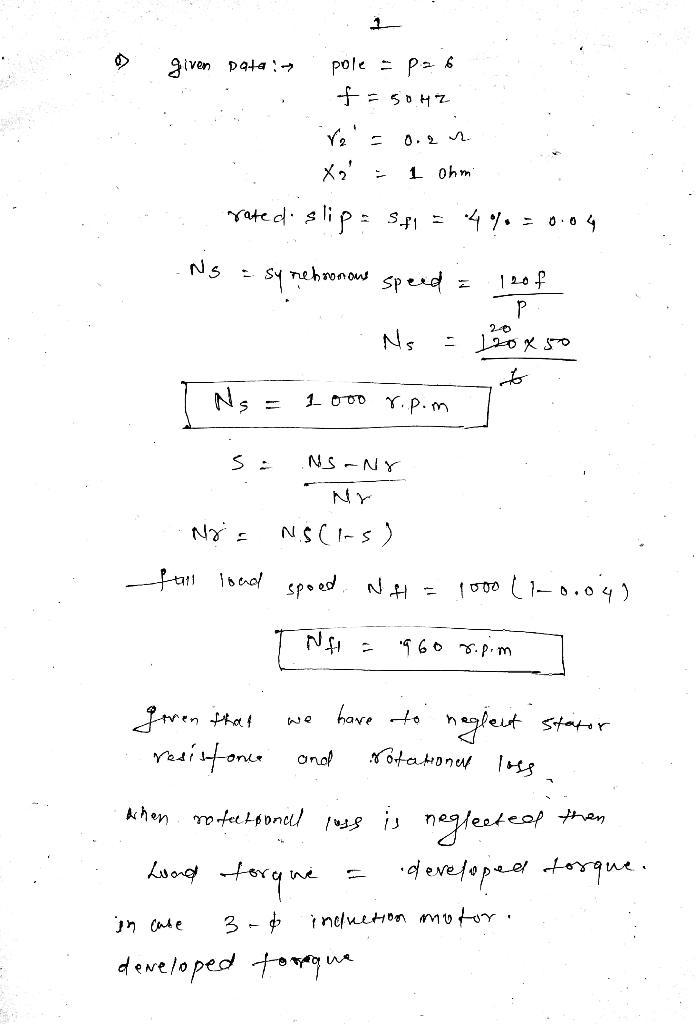 1
given Data:→ pole = P = 6
f = 50 Hz
r₂' = 0.2 Ω
X₂' = 1 ohm
rated slip = Sfl = 4 % = 0.04
Ns = synchronous speed = 120f / P
Ns = 120 x 50 / 6
20
Ns = 1000 r.p.m
S = Ns - Nr / Nr
Nr = Ns(1-s)
full load speed Nfl = 1000 (1-0.04)
Nfl = 960 r.p.m
given that we have to neglect stator
resistance and rotational loss
when rotational loss is neglected then
Load torque = developed torque.
in case 3-ϕ induction motor.
developed torque